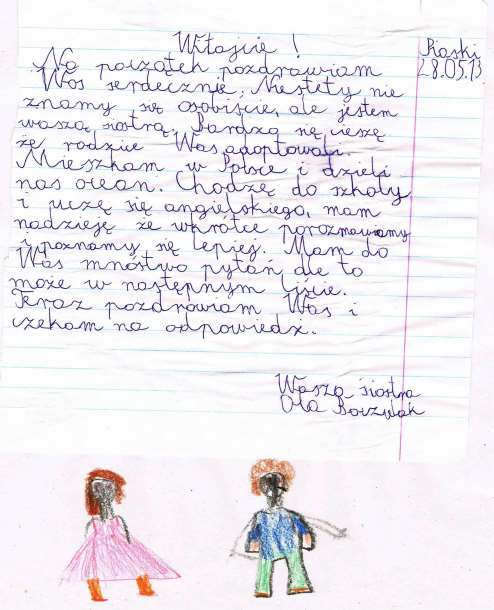 Witajcie!
Piaski
28.05.13
Na początek pozdrawiam
Was serdecznie. Niestety nie
znamy się osobiście, ale jestem
waszą siostrą. Bardzo się cieszę
że rodzice Was adoptowali.
Mieszkam w Polsce i dzieli
nas ocean. Chodzę do szkoły
i uczę się angielskiego, mam
nadzieję że wkrótce porozmawiamy
i poznamy się lepiej. Mam do
Was mnóstwo pytań, ale to
może w następnym liście.
Teraz pozdrawiam Was i
czekam na odpowiedź.
Wasza siostra
Ola